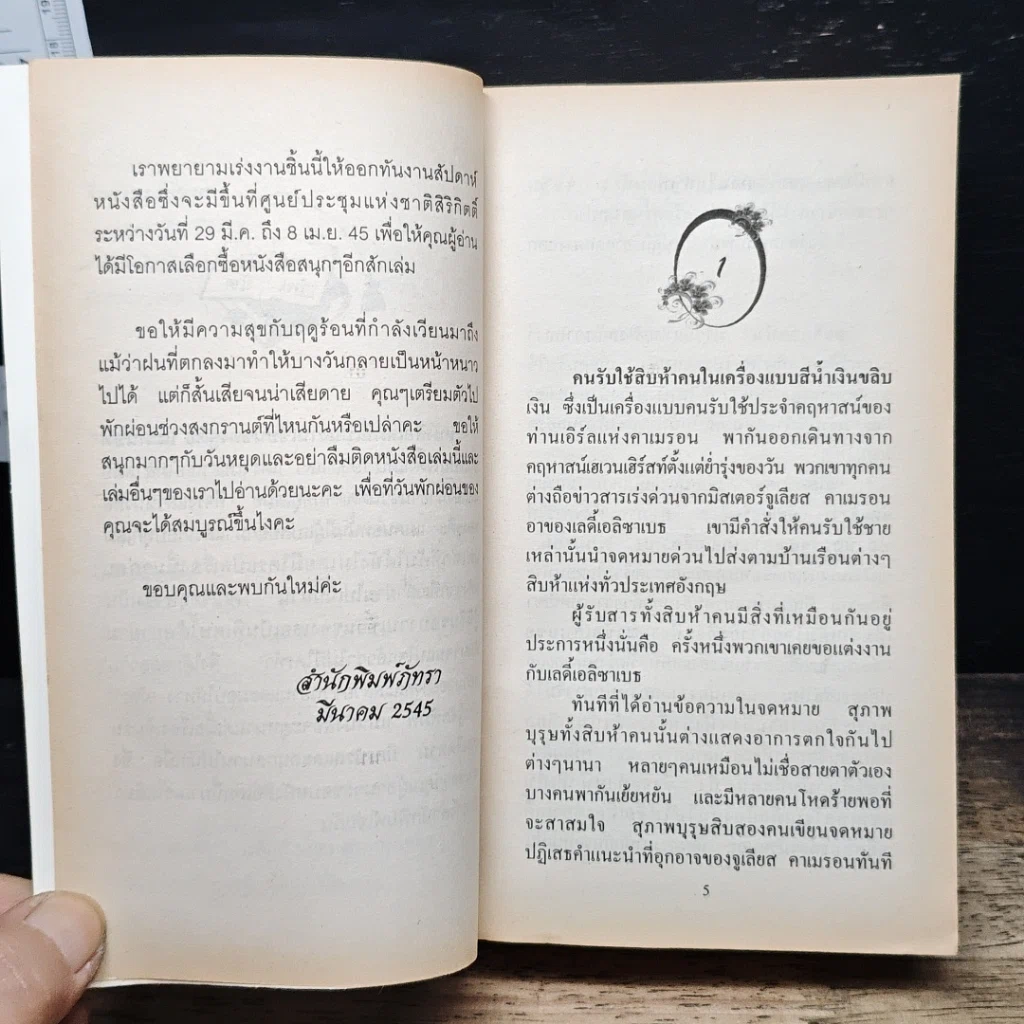 เราพยายามเร่งงานชิ้นนี้ให้ออกทันงานสัปดาห์
หนังสือซึ่งจะมีขึ้นที่ศูนย์ประชุมแห่งชาติสิริกิตติ์
ระหว่างวันที่ 29 มี.ค. ถึง 8 เม.ย. 45 เพื่อให้คุณผู้อ่าน
ได้มีโอกาสเลือกซื้อหนังสือสนุกๆอีกสักเล่ม
ขอให้มีความสุขกับฤดูร้อนที่กำลังเวียนมาถึง
แม้ว่าฝนที่ตกลงมาทำให้บางวันกลายเป็นหน้าหนาว
ไปได้ แต่ก็สั้นเสียจนน่าเสียดาย คุณๆเตรียมตัวไป
พักผ่อนช่วงสงกรานต์ที่ไหนกันหรือเปล่าคะ ขอให้
สนุกมากๆกับวันหยุดและอย่าลืมติดหนังสือเล่มนี้และ
เล่มอื่นๆของเราไปอ่านด้วยนะคะ เพื่อที่วันพักผ่อนของ
คุณจะได้สมบูรณ์ขึ้นไงคะ
ขอบคุณและพบกันใหม่ค่ะ
สำนักพิมพ์ภัทรา
มีนาคม 2545
1
คนรับใช้สิบห้าคนในเครื่องแบบสีน้ำเงินขลิบ
เงิน ซึ่งเป็นเครื่องแบบคนรับใช้ประจำคฤหาสน์ของ
ท่านเอิร์ลแห่งคาเมรอน พากันออกเดินทางจาก
คฤหาสน์เฮเวนเฮิร์สท์ตั้งแต่ย่ำรุ่งของวัน พวกเขาทุกคน
ต่างถือข่าวสารเร่งด่วนจากมิสเตอร์จูเลียส คาเมรอน
อาของเลดี้เอลิซาเบธ เขามีคำสั่งให้คนรับใช้ชาย
เหล่านั้นนำจดหมายด่วนไปส่งตามบ้านเรือนต่างๆ
สิบห้าแห่งทั่วประเทศอังกฤษ
ผู้รับสารทั้งสิบห้าคนมีสิ่งที่เหมือนกันอยู่
ประการหนึ่งนั่นคือ ครั้งหนึ่งพวกเขาเคยขอแต่งงาน
กับเลดี้เอลิซาเบธ
ทันทีที่ได้อ่านข้อความในจดหมาย สุภาพ
บุรุษทั้งสิบห้าคนนั้นต่างแสดงอาการตกใจกันไป
ต่างๆนานา หลายๆคนเหมือนไม่เชื่อสายตาตัวเอง
บางคนพากันเย้ยหยัน และมีหลายคนโหดร้ายพอที่
จะสาสมใจ สุภาพบุรุษสิบสองคนเขียนจดหมาย
ปฏิเสธคำแนะนำที่อุกอาจของจูเลียส คาเมรอนทันที
5